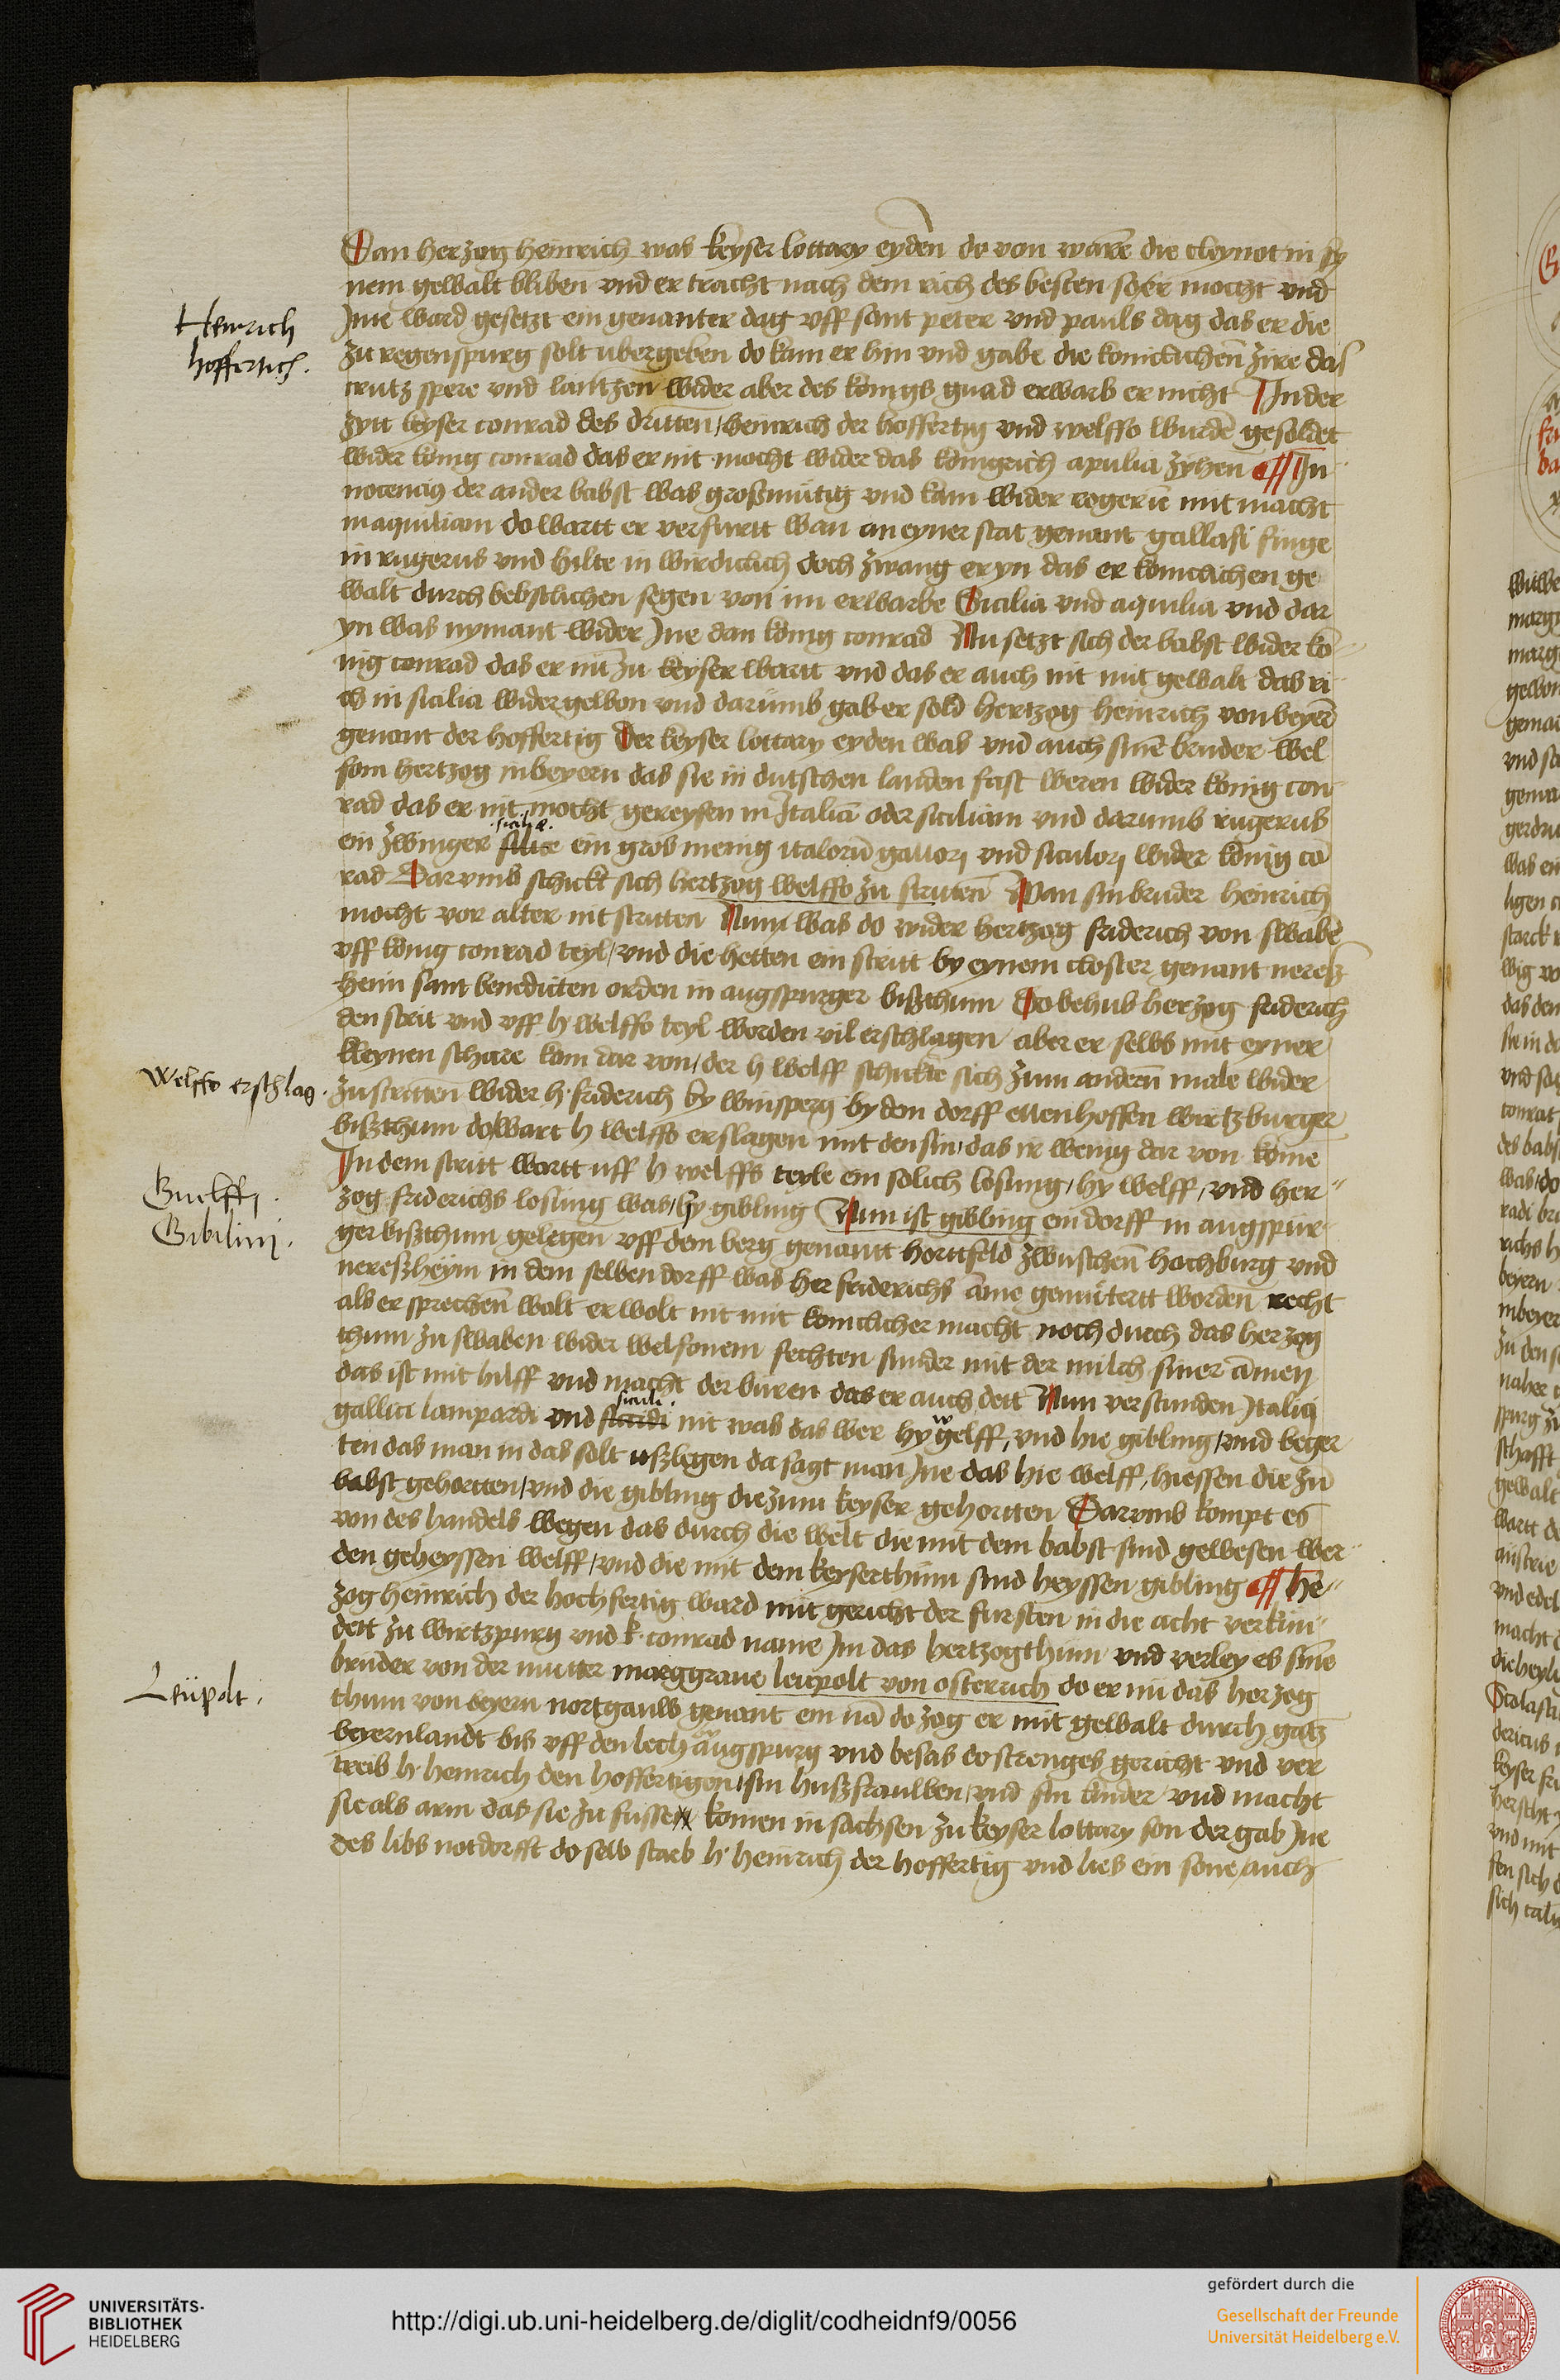 Dan herzog heinrich was keyser lottary eyden do von warē die cleynot in sy
nem gewalt bliben vnd er tracht nach dem rich des besten so er mocht vnd
Jme ward gesetzt ein genanter dag vff sant peter vnd pauls dag das er die
Heinrich
hoffertich.
zu regenspurg solt ubergeben do kam er hin vnd gabe die koniclichen zire das
crutz spere vnd lantzen wider aber des konigs gnad erwarb er nicht In der
zytt keyser conrad des dritten / heinrich der hoffertig vnd welffo wurdē gesoldet
wider konig conrad das er nit mocht wider das konigrich apulia zyhen In
nocencius der ander babst was großmutig vnd kam wider rogerū mit macht
in aquiliam do wartt er verfurtt wan an eyner stat genant gallasi finge
in rugerus vnd hilte in wirdiclich doch zwang er yn das er koniclichen ge
walt durch bebstlichen segen von im erwarbe Sicilia vnd aquilia vnd dar
yn was nymant wider Jne dan konig conrad Nu setzt sich der babst wider ko
nig conrad das er nit zu keyser wartt vnd das er auch nit mit gewalt das ri
ch in sicilia wider gewon vnd darumb gab er sold hertzog heinrich von beyerē
genant der hoffertig Der keyser lottary eyden was vnd auch sinē bruder wel
fom hertzog in beyern das sie in dutschen landen fast weren wider konig con
rad das er nit mocht gereysen in Italiā oder siciliam vnd darumb rugerus
sicilie.
ein zwinger silice ein gros menig italorū gallorꝫ vnd siculorꝫ wider konig cō
rad Darvmb schickt sich hertzog welffo zu stritten Wan sin bruder heinrich
mocht vor alter nit stritten Nun was do wider hertzog friderich von swabē
vff konig conrad teyl / vnd die hetten ein stritt by eynem closter genant neresz
heim sant benedicten orden in augspurger biszthum Do behub herzog friderich
den strit vnd vff h welffo teyl worden vil erschlagen aber er selbs mit eyner
kleynen schare kom dar von / der h welff schickte sich zum andern male wider
Welffo erschlag.
zu stritten wider h. friderich by winsperg by dem dorff ellenhoffen wirtzburger
biszthum do wart h welffo erslagen mit den sin / das ir wenig dar von kome
In dem stritt wartt uff h welffs teyle ein solich losung / hy welff / vnd her
Guelffj.
Gibilinj.
zog friderichs losung was / hy gibling Nun ist gibling ein dorff in augspur
ger biszthum gelegen vff dem berg genantt horttfeld zwuschen hochburg vnd
nereszheym in dem selben dorff was her friderichs āme gemutertt worden recht
als er sprechen wolt er wolt nit mit koniclicher macht noch durch das herzog
thum zu swaben wider welfonem fechten sunder mit der milch siner āmen
das ist mit hilff vnd macht der buren das er auch dett Nun verstunden Italij
siculi.
gallici lampardi vnd siculi nit was das wer hy welff, vnd hie gibling / vnd beger
ten das man in das solt uszlegen da sagt man Jne das hie welff, hiessen die zū
babst gehortten / vnd die gibling die zum keyser gehortten Darvmb kompt es
von des handels wegen das durch die welt die mit dem babst sind gewesen wer
den geheyssen welff / vnd die mit dem keyserthum sind heyssen gibling he
zog heinrich der hochfertig ward mit gericht der fursten in die acht verkun
dett zu wirtzpurg vnd k. conrad name Im das hertzogthum vnd verley es sinē
bruder von der mutter marggraue leupolt von osterrich do er nu das herzog
Leupolt.
thum von beyern nortgauws genant ein nā do zog er mit gewalt durch gatz
beyernlandt bis vff den lech by augspurg vnd besas do strenges gericht vnd ver
treib h. heinrich den hoffertigen / sin huszfrauwen / vnd sin kinder vnd macht
sie als arm das sie zu fusse komen in sachsen zu keyser lottary son der gab Jne
des libs notdorfft do selb starb h. heinrich der hoffertig vnd lies ein sone / auch
UNIVERSITÄTS-
BIBLIOTHEK
HEIDELBERG
http://digi.ub.uni-heidelberg.de/diglit/codheidnf9/0056
gefördert durch die
Gesellschaft der Freunde
Universität Heidelberg e.V.